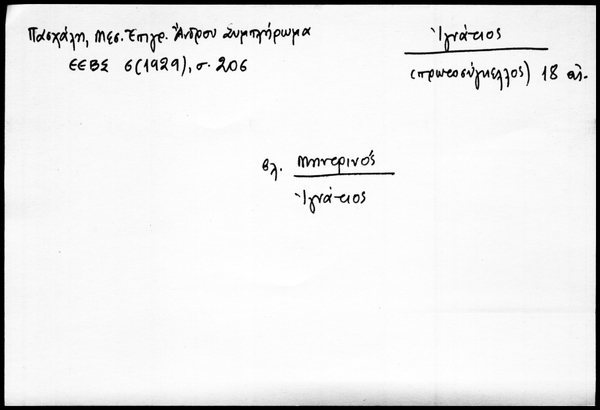 Πασχάλη, Μεσ. Ἐπιγρ. Ἄνδρου Συμπλήρωμα
ΕΕΒΣ 6(1929), σ. 206
Ἰγνάτιος
(πρωτοσύγκελλος) 18 αἰ.
βλ. Μηνερινός
Ἰγνάτιος